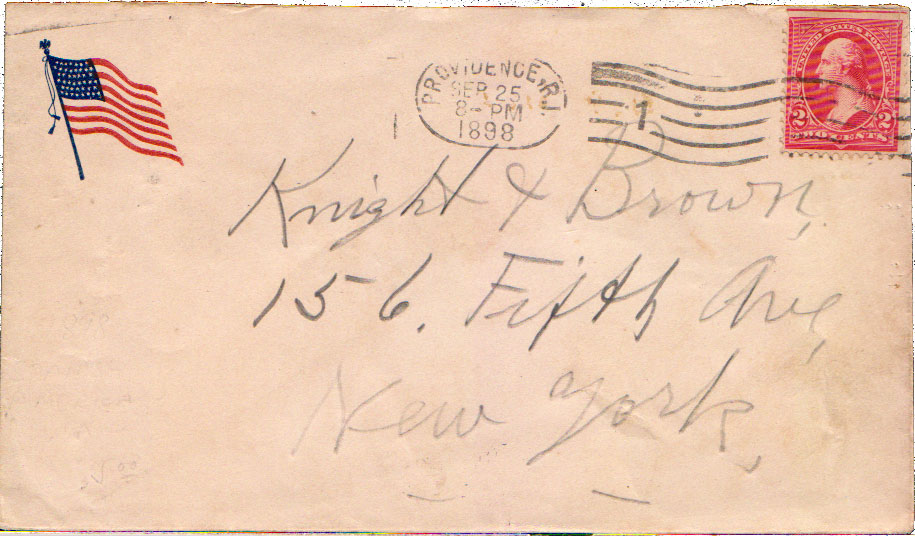 PROVIDENCE, R.I.
SEP 25
8 - PM
1898
1
UNITED STATES POSTAGE
2 2
TWO CENTS
Knight & Brown,
156, Fifth Ave,
New York,